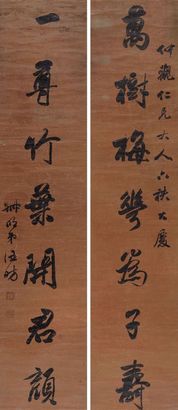 萬樹梅花為子壽
竹龕仁兄大人六秩大慶
一尊竹葉開君顏